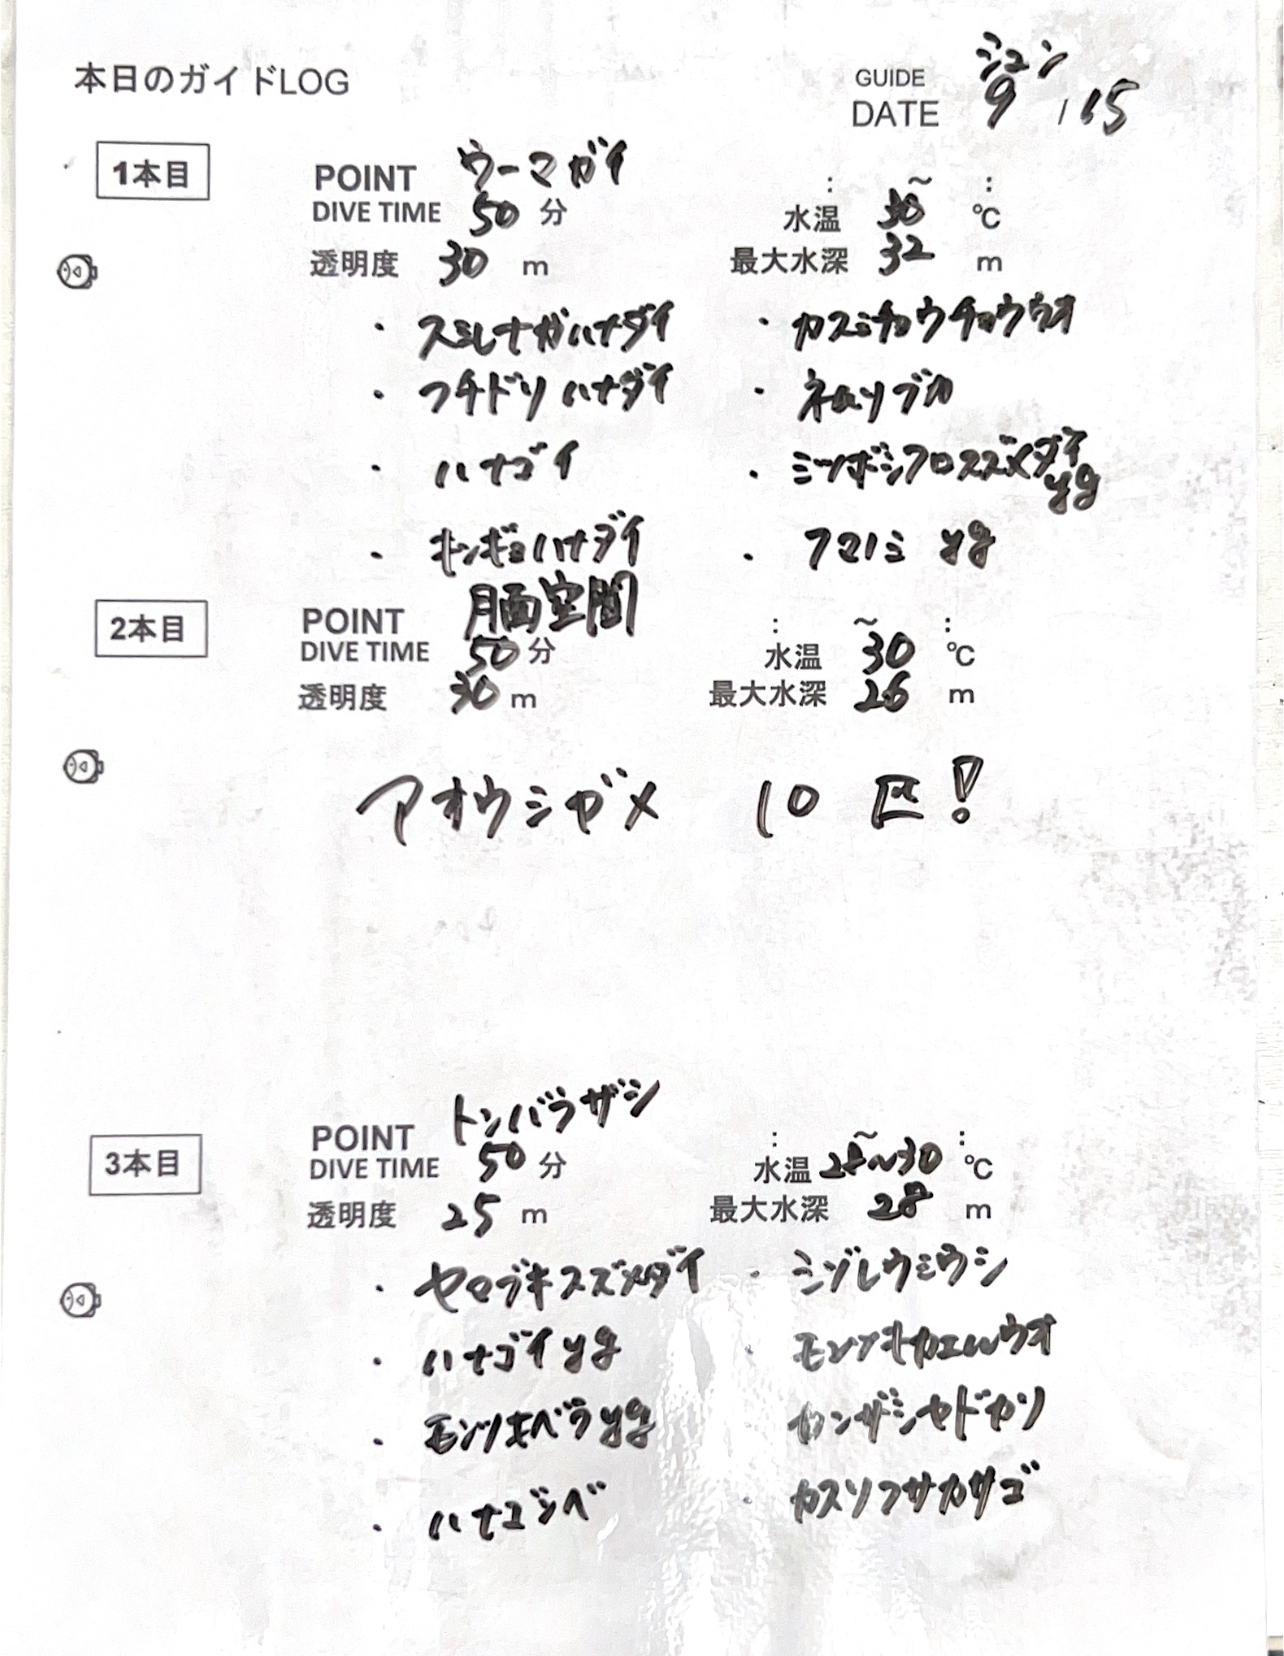 本日のガイドLOG
GUIDE ジュン
DATE 9 / 15
1本目
POINT ウーマガイ
: ~ :
DIVE TIME 50 分
水温 30 ℃
透明度 30 m
最大水深 32 m
・ スミレナガハナダイ
・ カスミチョウチョウウオ
・ フチドリハナダイ
・ ネムリブカ
・ ハナゴイ
・ ミツボシクロスズメダイ yg
・ キンギョハナダイ
・ クマノミ yg
2本目
POINT 月面空間
: ~ :
DIVE TIME 50 分
水温 30 ℃
透明度 30 m
最大水深 26 m
アオウミガメ 10 匹!
3本目
POINT トンバラザシ
: ~ :
DIVE TIME 50 分
水温 28~30 ℃
透明度 25 m
最大水深 28 m
・ ヤマブキスズメダイ
・ ミゾレウミウシ
・ ハナゴイ yg
・ モンツキカエルウオ
・ モンツキベラ yg
カンザシヤドカリ
・ ハナゴンベ
・ カスリフサカサゴ